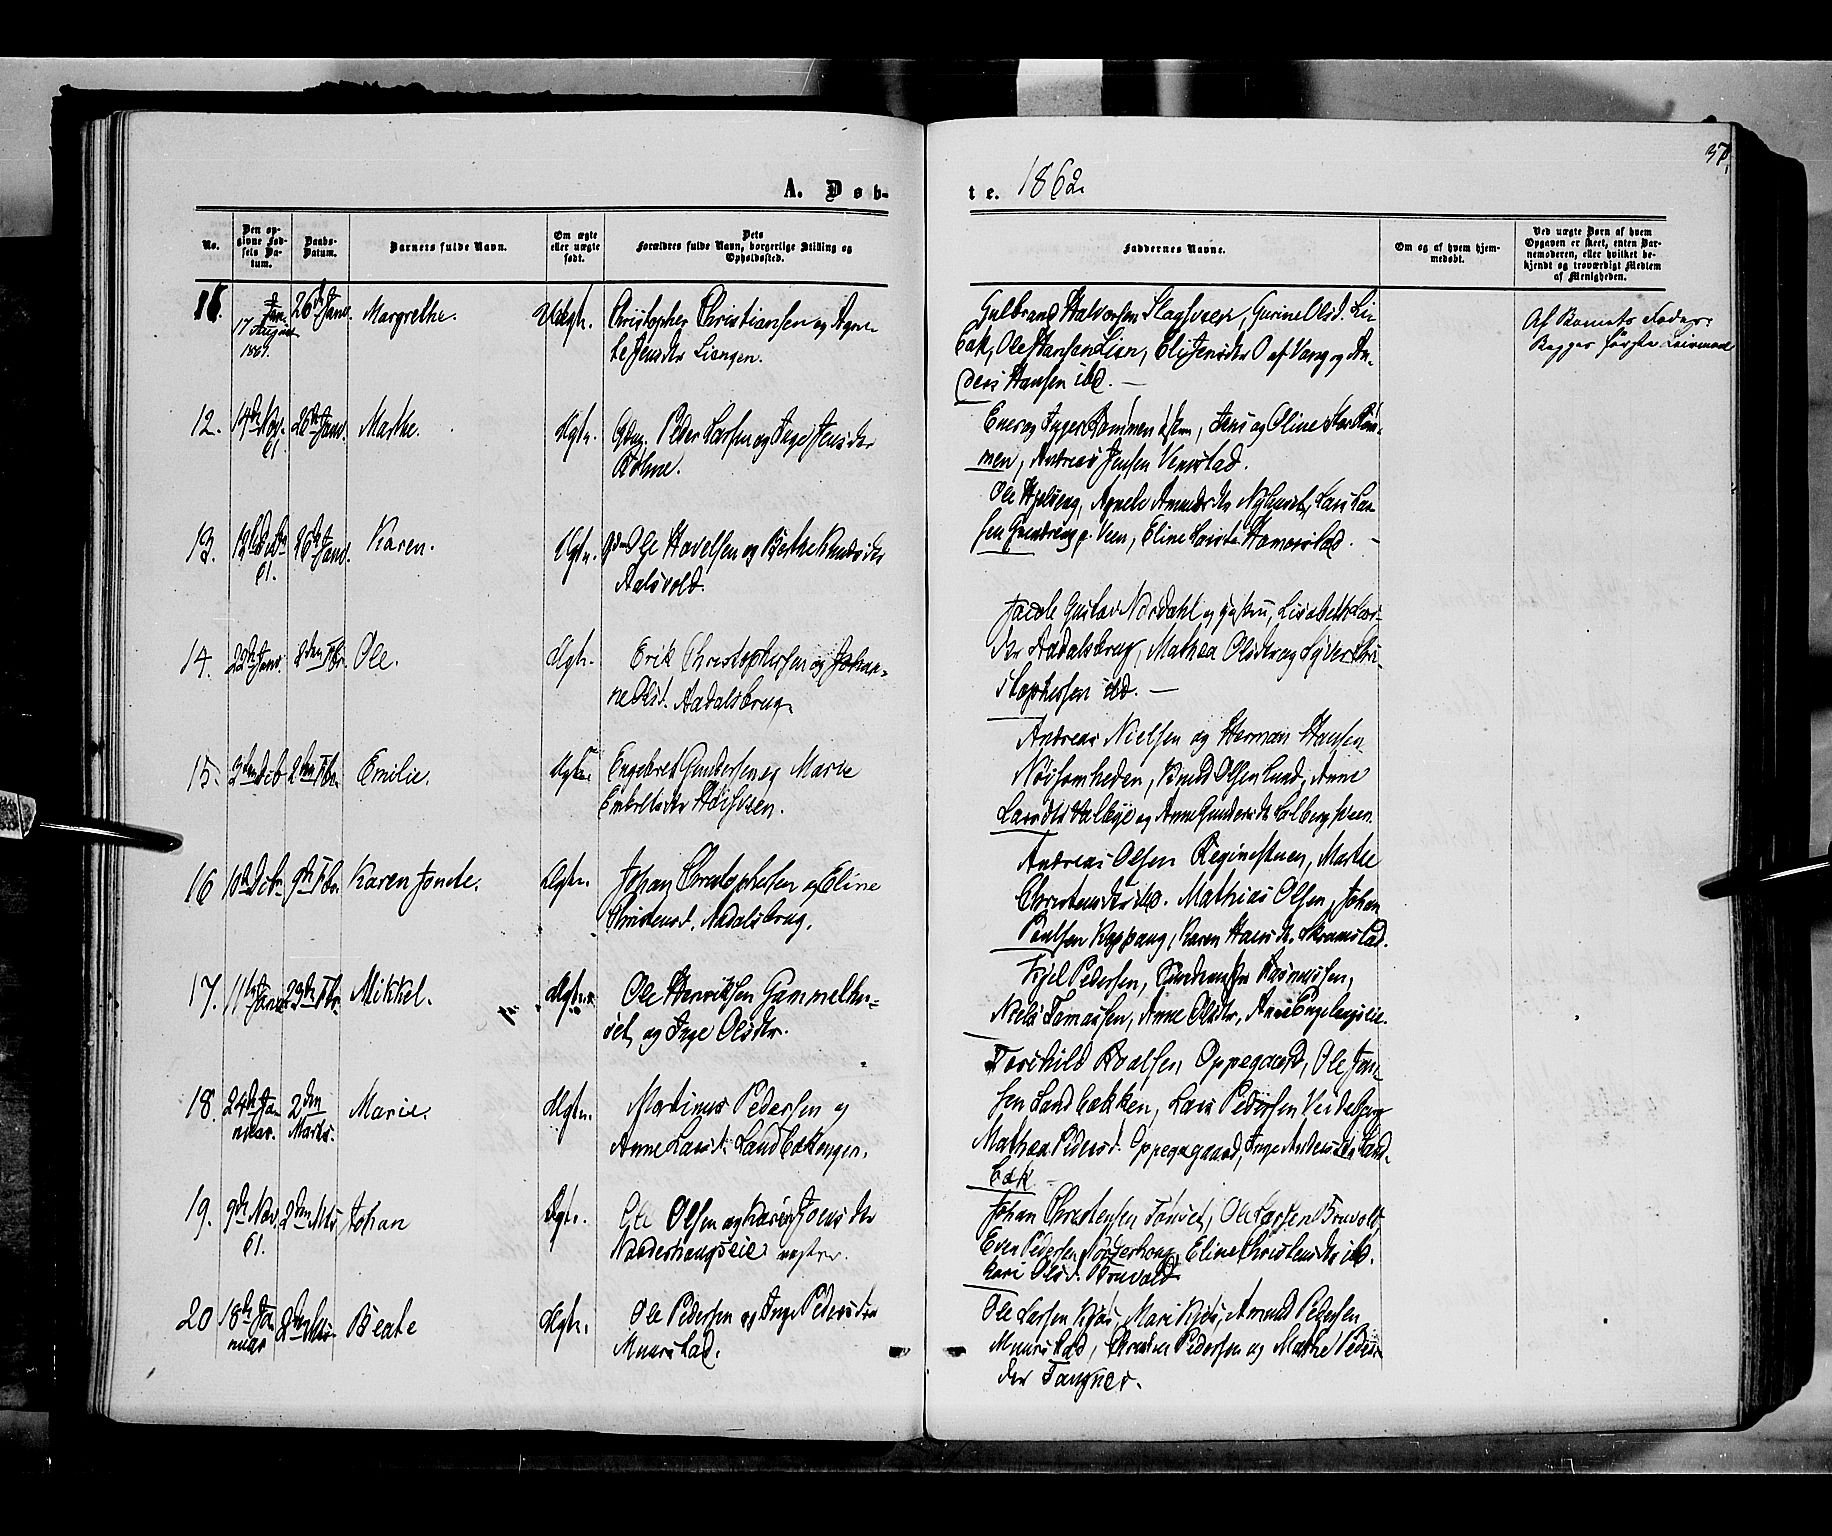 37
A. Døb-
te. 1862.
No.
Den op-
givne Fød-
sels Da-
tum.
Daabs-
Datum.
Barnets fulde Navn.
Om ægte
eller uægte
født.
Dets
Forældres fulde Navn, borgerlige Stilling og
Opholdssted.
Faddernes Navne.
Om og af hvem hjem-
medøbt.
Ved uægte Børn af hvem
Opgaven er skeet, enten Bar-
nemoderen, eller hvilket be-
kjendt og troværdigt Medlem
af Menigheden.
11.
17
1861.
26 Janr.
Margrethe.
Uægte.
Christopher Christiansen og Agne-
te Jensdr Liengen.
Gulbrand Halvorsen Slagsveen, Gurine Olsd. Lie-
bak, Ole Hansen Lien, Eli Jensdr af Vang og An-
ders Hansen ibd.
Af Barnets Fader:
Begges første Leiermaal
12.
14de Nov.
61.
26de Janr.
Marthe.
Ægte.
Gdmg. Peder Larsen og Inge Jensdr
Jens og Oline
men, Andreas Jensen Venstad.
13.
61.
26de Janr.
Karen.
Ægte.
Ole Havelsen og Berthe Knudsdr
Aalsvold.
Ole Agnete Amundsdr Lars Lar-
sen Eline
14.
22de Janr.
2den Fbr.
Ole.
Ægte.
Erik Christophersen og Johan-
ne Olsd. Aadalsbrug.
Jacob Gustav Nordahl og Hustru, Lisabeth Lars-
dr Aadalsbrug, Mathea Olsdr og Syver Chri-
stophersen ibd.
15.
2den Fbr.
Emilie.
Ægte.
Engebret Gundersen og Marie
Andreas Nielsen og Herman Hansen
Nøisomheden, Knud Olsen Lund, Anne
Larsdr og Anne Gundersdr
16
10de Decbr.
9de Fbr.
Karen Jonete.
Ægte.
Johan Christophersen og Eline
Christensd. Aadalsbrug.
Andreas Olsen Reginestuen, Marthe
Christensdr ibd. Mathias Olsen, Johan
Poulsen Koppang, Karen Hansdr Skramstad.
17.
11te Janr
23de Fbr.
Mikkel.
Ægte.
Ole Henriksen Gammelhu-
set og Inge Olsdr.
Kjel Pedersen, Rasmussen,
Niels Tomassen, Anne Olsdr, Anne Engelaugseie.
18.
24de Ja-
nuar.
2den
Marts.
Marie.
Ægte.
Martinus Pedersen og
Anne Larsd. Landbækengen.
Torchild Hoelsen, Oppegaard, Ole Jen-
sen Landbækken, Lars Pedersen
Mathea Pedersd. Oppegaard, Inge Andersdr Land-
bæk
19.
9de Nov.
61.
2den Mts.
Johan
Ægte.
Ole Olsen og Karen Joensdr
nordre.
Johan Christensen Ole Larsen Bruvold,
Even Pedersen Eline Christensdr ibd.
Kari Olsd. Bruvold
20
18de Ja-
nuar
2den Mts.
Beate
Ægte.
Ole Pedersen og Inge Pedersdr
Muurstad.
Ole Larsen Kjøs, Mari Kjøs, Amund Pedersen
Muurstad, Christian Pedersen og Marthe Peders-
der Tangner.